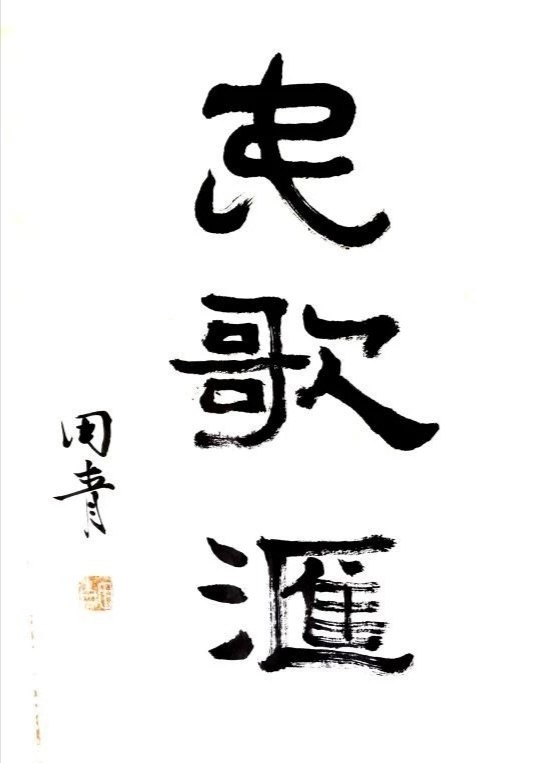 民歌滙
田青